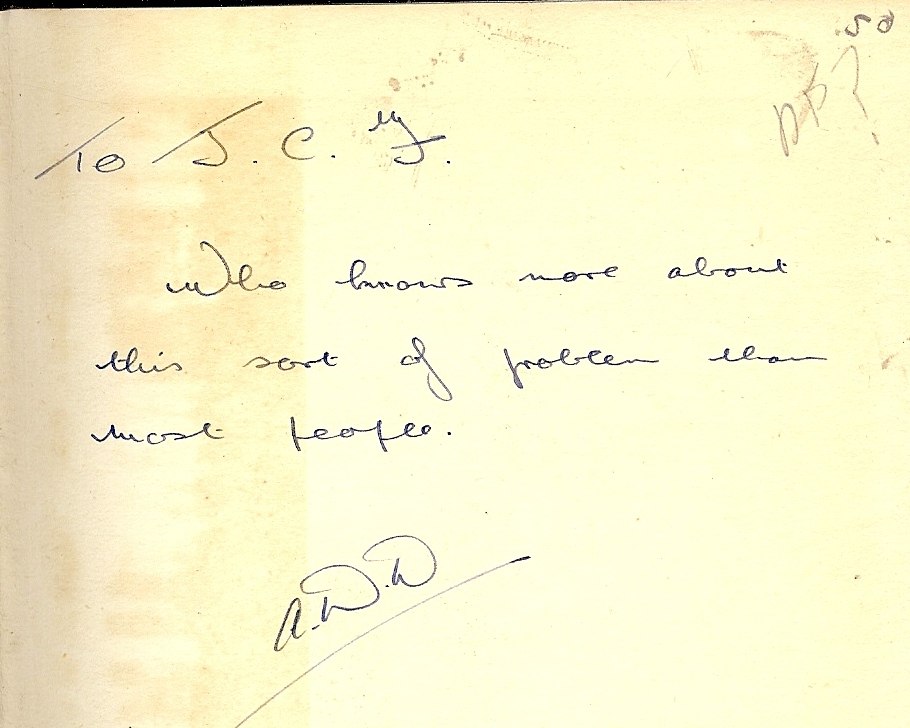 .50
To J. C. J.
Who knows more about
this sort of problem than
most people.
A.D.D